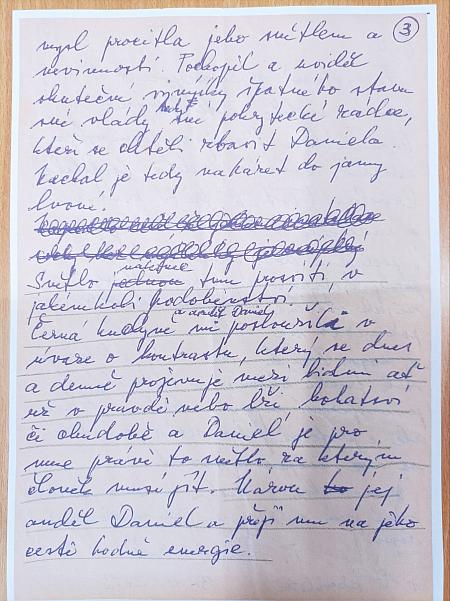 mysl procitla jeho světlem a ③
nevinností. Pochopil a uviděl
skutečné výmysly špatného stavu
své vlády, tedy své pokrytecké rádce,
kteří se chtěli zbavit Daniela.
Nechal je tedy naházet do jámy
lvové!
Světlo nakonec tím prosvítí v
jakémkoli podobenství.
Černá kuchyně a anděl Daniel mě posloužila v
úvaze o kontrastu, který se dnes
a denně projevuje mezi lidmi ať
už v pravdě nebo lži, bohatsví
či chudobě a Daniel je pro
mne právě to světlo, za kterým
člověk musí jít. Károu jej
anděl Daniel a přeji mu na jeho
cestě hodně energie.